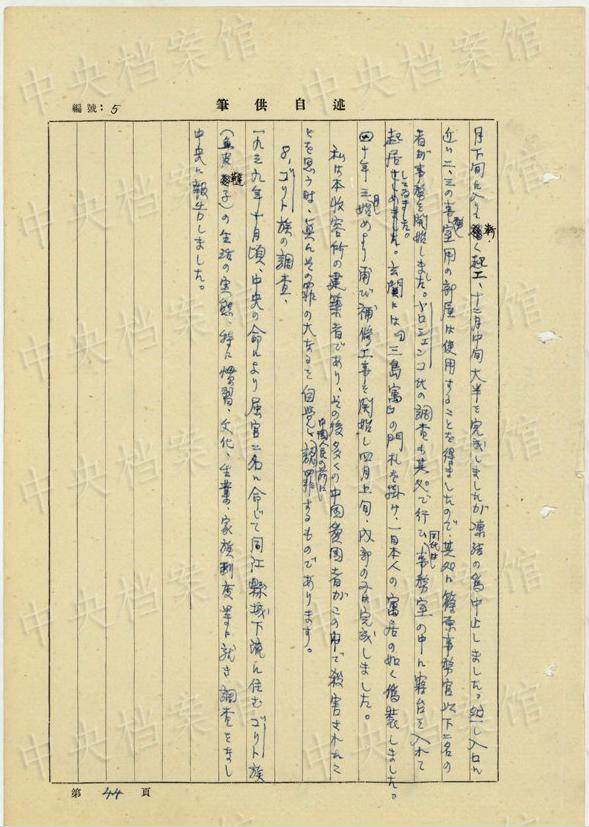 中央档案馆
述自供筆
編號：5
月下旬に入りて漸く起工、十二月中旬大半を完成しましたが凍結の為中止しました。但し入口に
近い二、三の事務室用の部屋は使用することを得ましたので、其処に篠原事務官以下二名の
者が事務を開始しました。ドロシェンコ氏の調査も其処で行ひ、同氏は事務室の中に寝台を入れて
起居してゐました。玄関には「三島寓」の門札を掛け、一日本人の寓居の如く偽装しました。
四十年三月始めより再び補修工事を開始し四月上旬、内部のみ完成しました。
私は本収容所の建築者であり、その後多くの中国愛国者がこの中で殺害されたこ
とを思う時、真にその罪の大なるを自覚し中国人民の前に認罪するものであります。
8、ゴリト族の調査、
一九三九年十月頃、中央の命により属官二名に命じて同江縣城下流に住むゴリト族
（魚皮韃子）の生活の実態、特に慣習、文化、生業、家族制度等に就き調査をまし
中央に報告しました。
第 44 頁